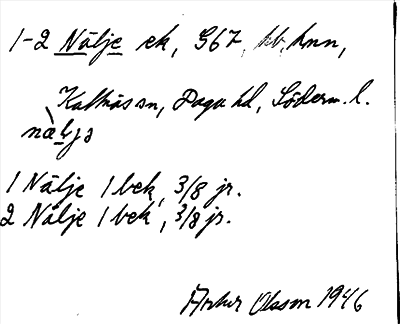 1-2 Nälje ek, G67, bb, hnn,
Kattnäs sn, Daga hd, Söderm. l.
nàlja
1 Nälje 1 bek, 3/8 jr.
2 Nälje 1 bek, 3/8 jr.
Arthur Olsson 1946